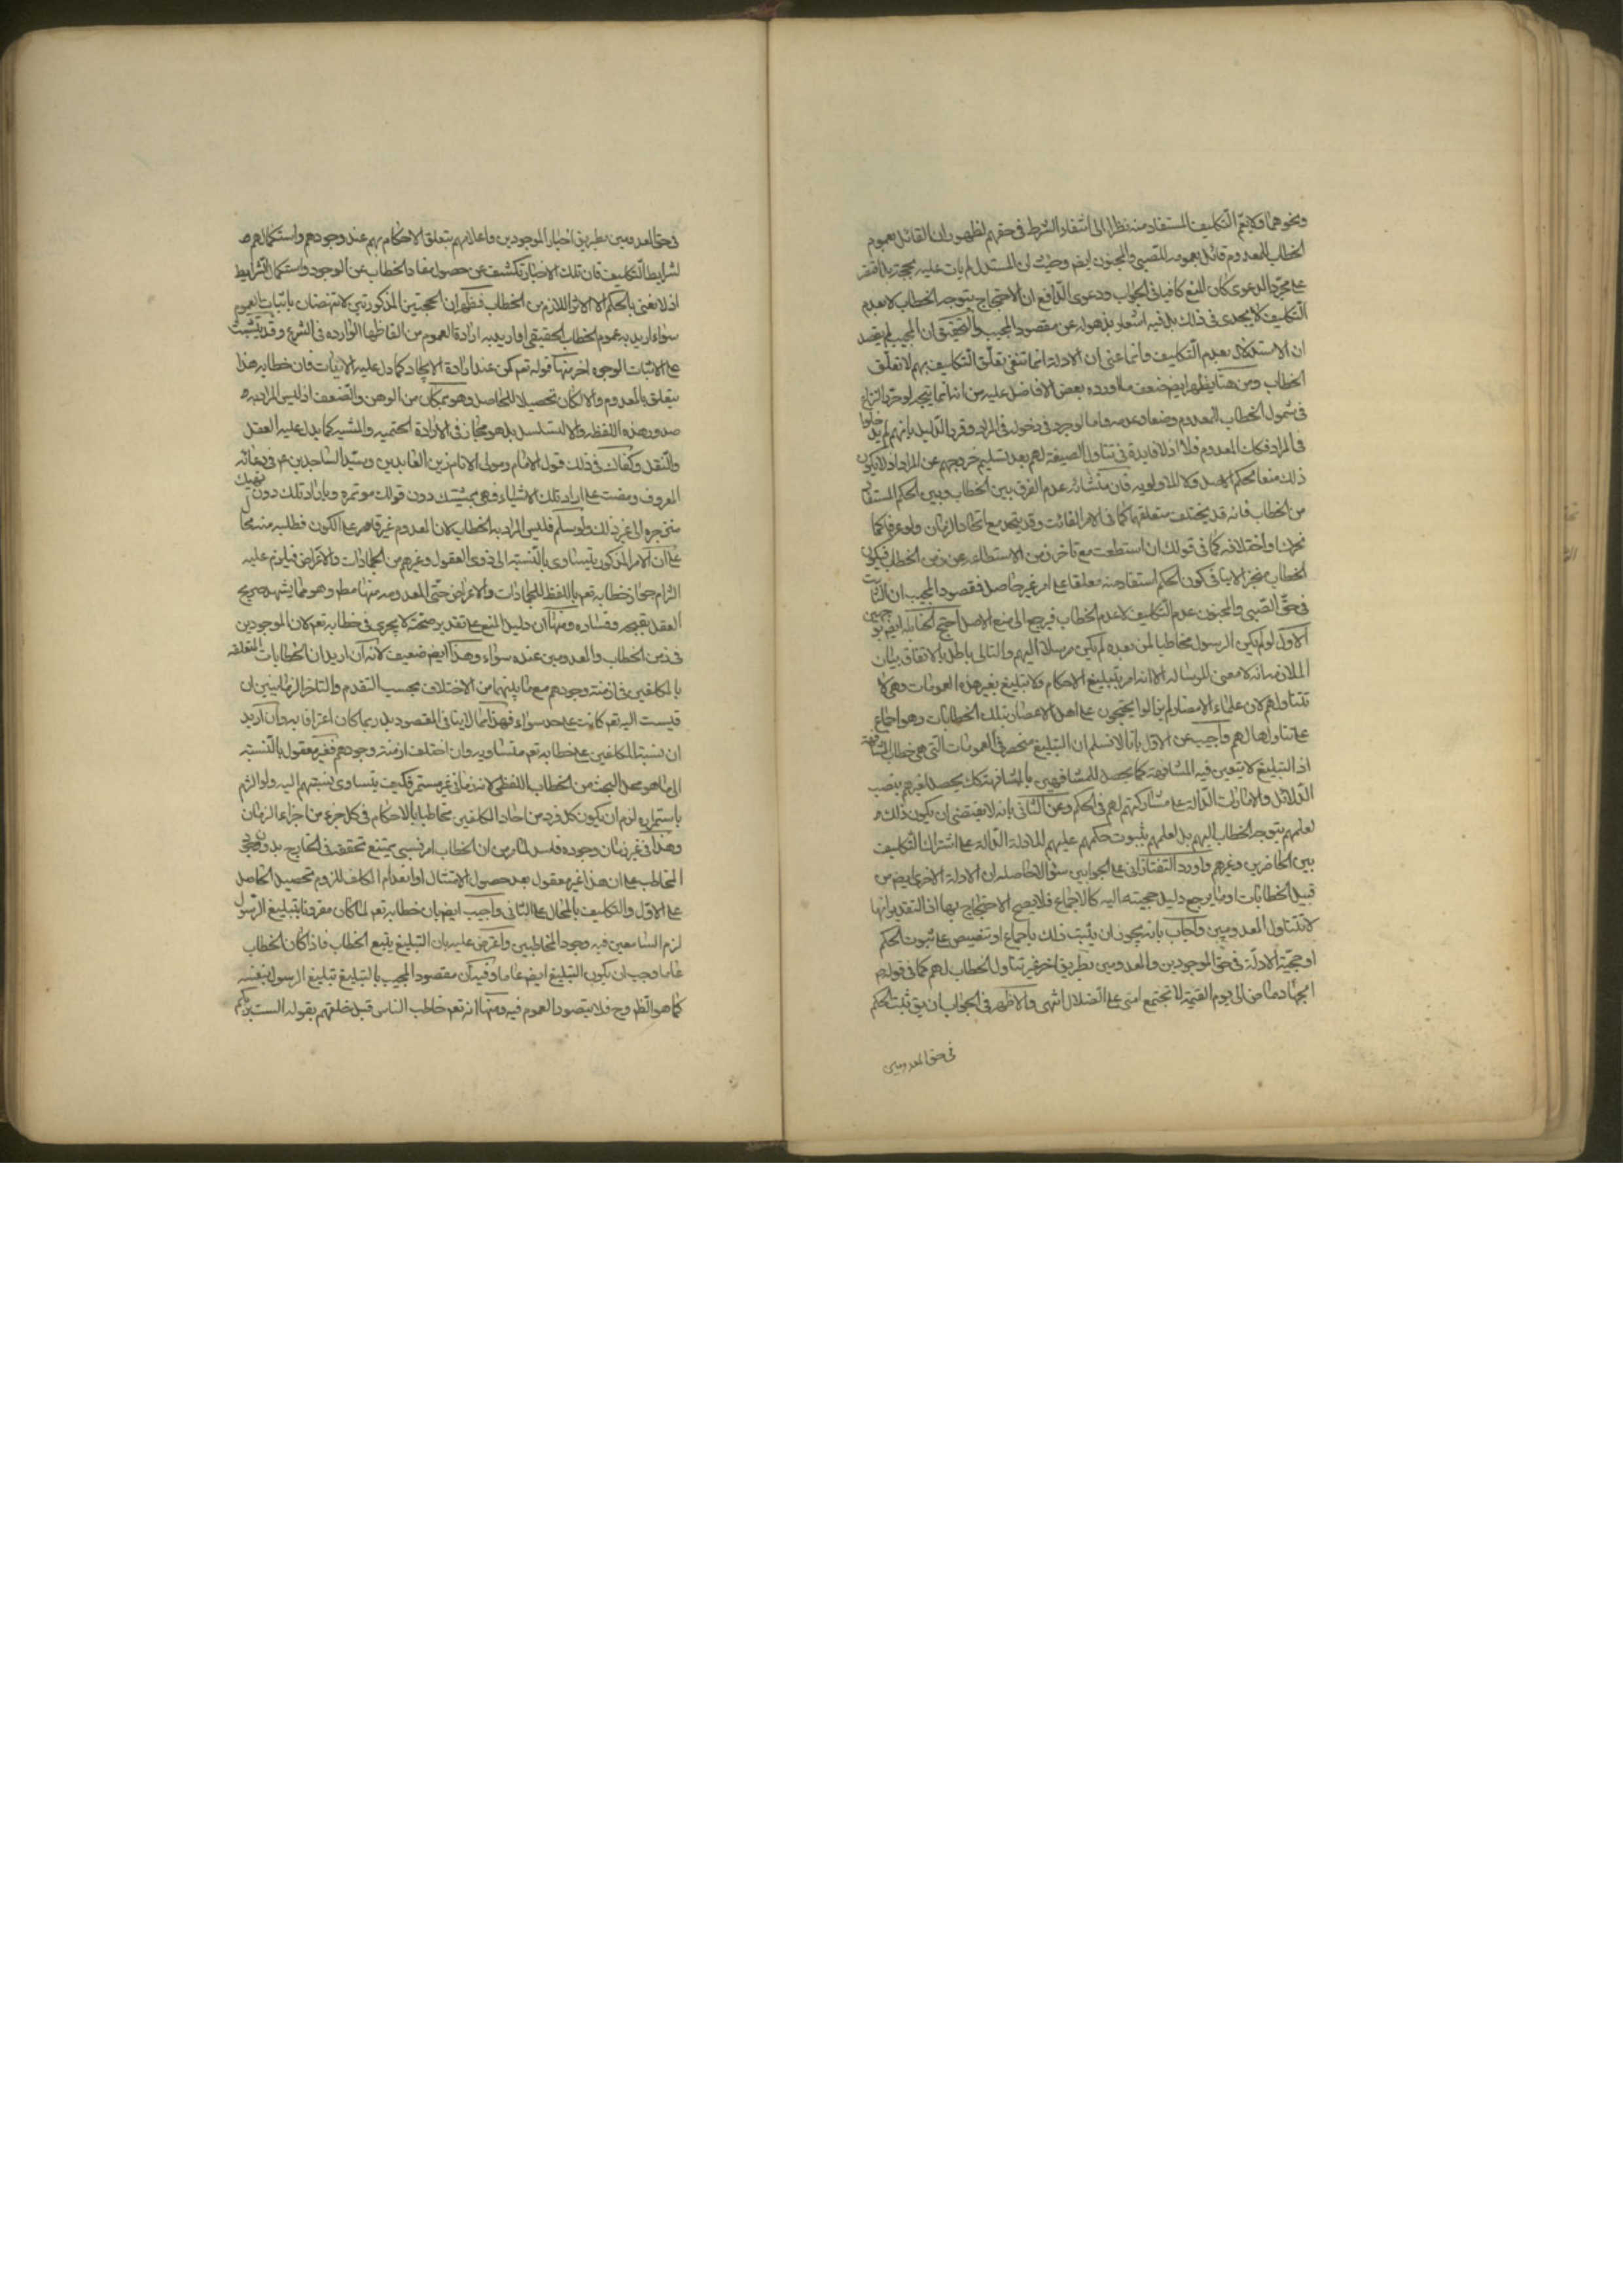 ونحوهما ولا يعم التكليف المستفاد منه نظرا الى انتفاء الشرط فى حقهم لظهور ان القائل بعموم
الخطاب للمعدوم قائل بعمومه للصبى والمجنون ايض وحيث ان المستدل لم يات عليه بحجة بل اقتصر
على مجرد الدعوى كان المنع كافيا فى الجواب ودعوى الدافع ان الاحتجاج بتوجه الخطاب لا بعدم
التكليف لا يجدى فى ذلك بل فيه اشعار بذهوله عن مقصود المجيب والتحقيق ان المجيب لم يقصد
ان الاستدلال بعدم التكليف وانما عنى ان الادلة انما تنفى تعلق التكليف بهم لا تعلق
الخطاب ومن هنا يظهر ايض ضعف ما اورده بعض الافاضل عليه من انه انما يتجه لو حرر النزاع
فى شمول الخطاب للمعدوم وضعا وعدمه واما لو حرر فى دخوله فى المراد وقرر الدليل بانهم لم يدخلوا
فى المراد فكذا المعدوم فلا اذ لا فايدة فى تناول الصيغة لهم بعد تسليم خروجهم عن المراد اذ لا يكون
ذلك منعا لحكم الاصل ولا للاولويه فان منشائه عدم الفرق بين الخطاب وبين الحكم المستفاد
من الخطاب فانه قد يختلف متعلقهما كما فى الامر الفائت وقد يتحد مع اتحاد الزمان ولو عرفا كما
نحرك واختلافه كما فى قولك ان استطعت مع تاخر زمن الاستطاعه عن زمن الخطاب فيكون
الخطاب منجزا لا ينافى كون الحكم المستفاد منه معلقا على امر غير حاصل فمقصود المجيب ان الثابت
فى حق الصبى والمجنون عدم التكليف لا عدم الخطاب فيرجع الى منع الاصل احتج الحنابله ايض بوجهين
الاول لو لم يكن الرسول مخاطبا لمن بعده لم يكن مرسلا اليهم والتالى باطل بالاتفاق بيان
الملازمه انه لا معنى للرساله الا انه امر بتبليغ الاحكام ولا تبليغ بغير هذه العمومات وهى لا
تتناولهم لان علماء الامصار لم يزالوا يحتجون على اهل الاعصار بتلك الخطابات وهو اجماع
على تناولها لهم واجيب عن الاول بانا لا نسلم ان التبليغ منحصر فى العمومات التى هى خطاب المشافهة
اذ التبليغ لا يتعين فيه المشافهة كما يحصل للمشافهين بالمشافهة كك يحصل لغيرهم بنصب
الدلائل والامارات الدالة على مشاركتهم لهم فى الحكم وعن الثانى بانه لا يقتضى ان يكون ذلك
لعلمهم بتوجه الخطاب اليهم بل لعلمهم بثبوت حكمهم عليهم للادلة الدالة على اشتراك التكليف
بين الحاضرين وغيرهم واورد التفتازانى على الجوابين سؤالا حاصله ان الادلة الاخرى ايض من
قبيل الخطابات او مما يرجع دليل حجيته اليه كالاجماع فلا يصح الاحتجاج بها اذ التقدير انها
لا تتناول المعدومين واجاب بانه يجوز ان يثبت ذلك باجماع او تنصيص على ثبوت الحكم
او حجية الادلة فى حق الموجودين والمعدومين بطريق اخر غير تناول الخطاب لهم كما فى قوله
الجهاد ماض الى يوم القيمة لا تجتمع امتى على الضلال انتهى والاظهر فى الجواب ان يق ثبت الحكم
فى حق المعدومين
فى حق المعدومين بطريق اخبار الموجودين واعلامهم بتعلق الاحكام بهم عند وجودهم واستكمالهم
لشرايط التكليف فان تلك الاخبار تكشف عن حصول مفاد الخطاب عن الوجود واستكمال الشرايط
اذ لا يعنى بالحكم الا الاثر اللازم من الخطاب فظهر ان الحجتين المذكورتين لا تنهضان باثبات العموم
سواء اريد به عموم الخطاب الحقيقى او اريد به ارادة العموم من الفاظها الوارده فى الشرع وقد يتشبث
على الاثبات لوجوه اخر منها قوله تعم كن عند ارادة الايجاد كما دل عليه الايات فان خطابه هذا
يتعلق بالمعدوم والا لكان تحصيلا للحاصل وهو بمكان من الوهن والضعف اذ ليس المراد به
صدور هذه اللفظه والا لتسلسل بل هو مجاز فى الارادة الحتميه والمشيه كما يدل عليه العقل
والنقل وكفاك فى ذلك قول الامام ومولى الانام زين العابدين وسيد الساجدين ع فى دعائه
المعروف ومضت على ارادتك الاشياء فهى بمشيتك دون قولك مؤتمره وبارادتك دون نهيك
منزجره الى غير ذلك ولو سلم فليس المراد به الخطاب لان المعدوم غير قادر على الكون فطلبه منه محال
على ان الامر المذكور يتساوى بالنسبة الى ذوى العقول وغيرهم من الجمادات والاعراض فيلزم عليه
التزام جواز خطابه تعم باللفظ للجمادات والاعراض حتى المعدومه منها مط وهو مما يشهد صريح
العقل بقبحه وفساده ومنها ان دليل المنع على تقدير صحته لا يجرى فى خطابه تعم لان الموجودين
فى زمن الخطاب والمعدومين عنده سواء وهذا ايض ضعيف لانه ان اريد ان الخطابات المتعلقه
بالمكلفين فى ازمنة وجودهم مع ما بينهما من الاختلاف بحسب التقدم والتاخر الزمانيين ان
قيست اليه تعم كانت على حد سواء فهذا مما لا ينافى المقصود بل ربما كان اعترافا به وان اريد
ان نسبة المكلفين على خطابه تعم متساويه وان اختلف ازمنة وجودهم فغير معقول بالنسبه
الى ما هو محل البحث من الخطاب اللفظى لانه زمانى غير مستمر فكيف يتساوى نسبتهم اليه ولو التزم
باستمراره لزم ان يكون كل فرد من احاد المكلفين مخاطبا بالاحكام فى كل جزء من اجزاء الزمان
وهذا فى غير زمان وجوده فاسد لما مر من ان الخطاب امر نسبى يمتنع تحققه فى الخارج بدون وجود
المخاطب على ان هذا غير معقول بعد حصول الامتثال او انعدام المكلف للزوم تحصيل الحاصل
على الاول والتكليف بالمحال على الثانى واجيب ايض بان خطابه تعم لما كان مقرونا بتبليغ الرسول
لزم السامعين فيه وجود المخاطبين واعترض عليه بان التبليغ يتبع الخطاب فاذا كان الخطاب
عاما وجب ان يكون التبليغ ايض عاما وفيه ان مقصود المجيب بالتبليغ تبليغ الرسول بنفسه
كما هو الظ وح فلا يتصور العموم فيه ومنها انه تعم خاطب الناس قبل خلقهم بقوله الست بربكم